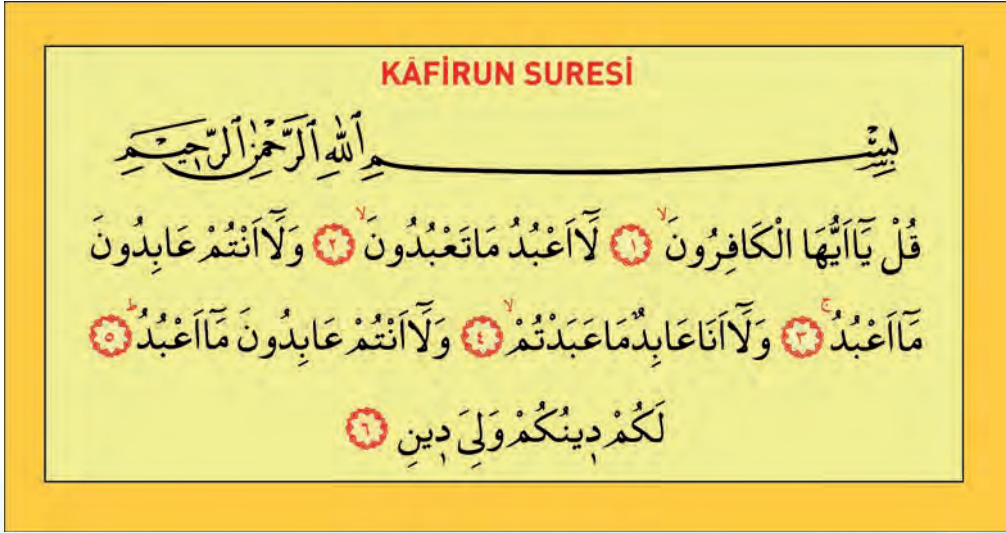 KÂFİRUN SURESİ
بِسْمِ اللّٰهِ الرَّحْمٰنِ الرَّحِيمِ
قُلْ يَٓا اَيُّهَا الْكَافِرُونَۙ ﴿١﴾ لَٓا اَعْبُدُ مَا تَعْبُدُونَۙ ﴿٢﴾ وَلَٓا اَنْتُمْ عَابِدُونَ
مَٓا اَعْبُدُۚ ﴿٣﴾ وَلَٓا اَنَا عَابِدٌ مَا عَبَدْتُمْۙ ﴿٤﴾ وَلَٓا اَنْتُمْ عَابِدُونَ مَٓا اَعْبُدُۜ ﴿٥﴾
لَكُمْ دِينُكُمْ وَلِيَ دِينِ ﴿٦﴾